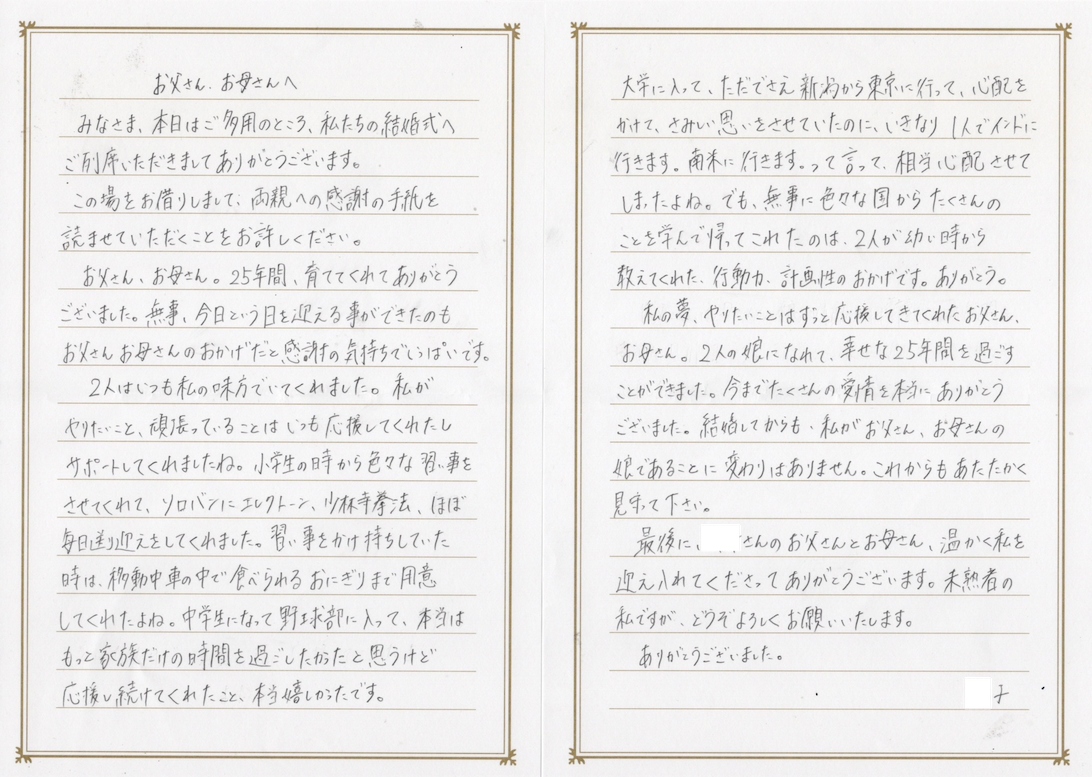 お父さん、お母さんへ
みなさま、本日はご多用のところ、私たちの結婚式へ
ご列席いただきましてありがとうございます。
この場をお借りしまして、両親への感謝の手紙を
読ませていただくことをお許しください。
お父さん、お母さん。25年間、育ててくれてありがとう
ございました。無事、今日という日を迎える事ができたのも
お父さんお母さんのおかげだと感謝の気持ちでいっぱいです。
2人はいつも私の味方でいてくれました。私が
やりたいこと、頑張っていることはいつも応援してくれたし
サポートしてくれましたね。小学生の時から色々な習い事を
させてくれて、ソロバンにエレクトーン、少林寺拳法、ほぼ
毎日送り迎えをしてくれました。習い事をかけ持ちしていた
時は、移動中車の中で食べられるおにぎりまで用意
してくれたよね。中学生になって野球部に入って、本当は
もっと家族だけの時間を過ごしたかったと思うけど
応援し続けてくれたこと、本当嬉しかったです。
大学に入って、ただでさえ新潟から東京に行って、心配を
かけて、さみしい思いをさせていたのに、いきなり1人でインドに
行きます。南米に行きます。って言って、相当心配させて
しまったよね。でも、無事に色々な国からたくさんの
ことを学んで帰ってこれたのは、2人が幼い時から
教えてくれた、行動力、計画性のおかげです。ありがとう。
私の夢、やりたいことはずっと応援してきてくれたお父さん、
お母さん。2人の娘になれて、幸せな25年間を過ごす
ことができました。今までたくさんの愛情を本当にありがとう
ございました。結婚してからも、私がお父さん、お母さんの
娘であることに変わりはありません。これからもあたたかく
見守って下さい。
最後に、さんのお父さんとお母さん、温かく私を
迎え入れてくださってありがとうございます。未熟者の
私ですが、どうぞよろしくお願いいたします。
ありがとうございました。
子